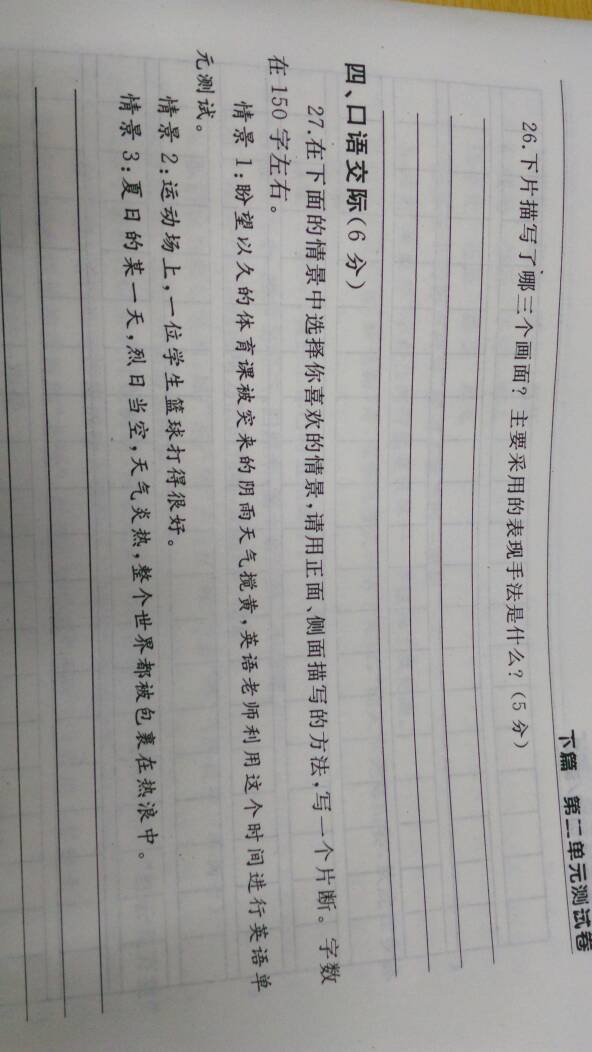 下篇 第二单元测试卷
26.下片描写了哪三个画面?主要采用的表现手法是什么?(5分)
四、口语交际(6分)
27.在下面的情景中选择你喜欢的情景,请用正面、侧面描写的方法,写一个片断。字数
在150字左右。
情景1:盼望以久的体育课被突来的阴雨天气搅黄,英语老师利用这个时间进行英语单
元测试。
情景2:运动场上,一位学生篮球打得很好。
情景3:夏日的某一天,烈日当空,天气炎热,整个世界都被包裹在热浪中。